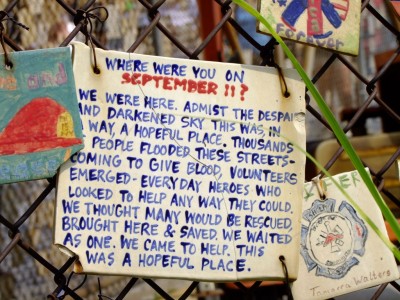 WHERE WERE YOU ON
SEPTEMBER 11?
WE WERE HERE. ADMIST THE DESPAI
AND DARKENED SKY THIS WAS, IN
WAY, A HOPEFUL PLACE. THOUSANDS
PEOPLE FLOODED THESE STREETS-
COMING TO GIVE BLOOD, VOLUNTEERS
EMERGED - EVERYDAY HEROES WHO
LOOKED TO HELP ANY WAY THEY COULD.
WE THOUGHT MANY WOULD BE RESCUED,
BROUGHT HERE & SAVED. WE WAITED
AS ONE. WE CAME TO HELP. THIS
WAS A HOPEFUL PLACE.
Forever
Walters